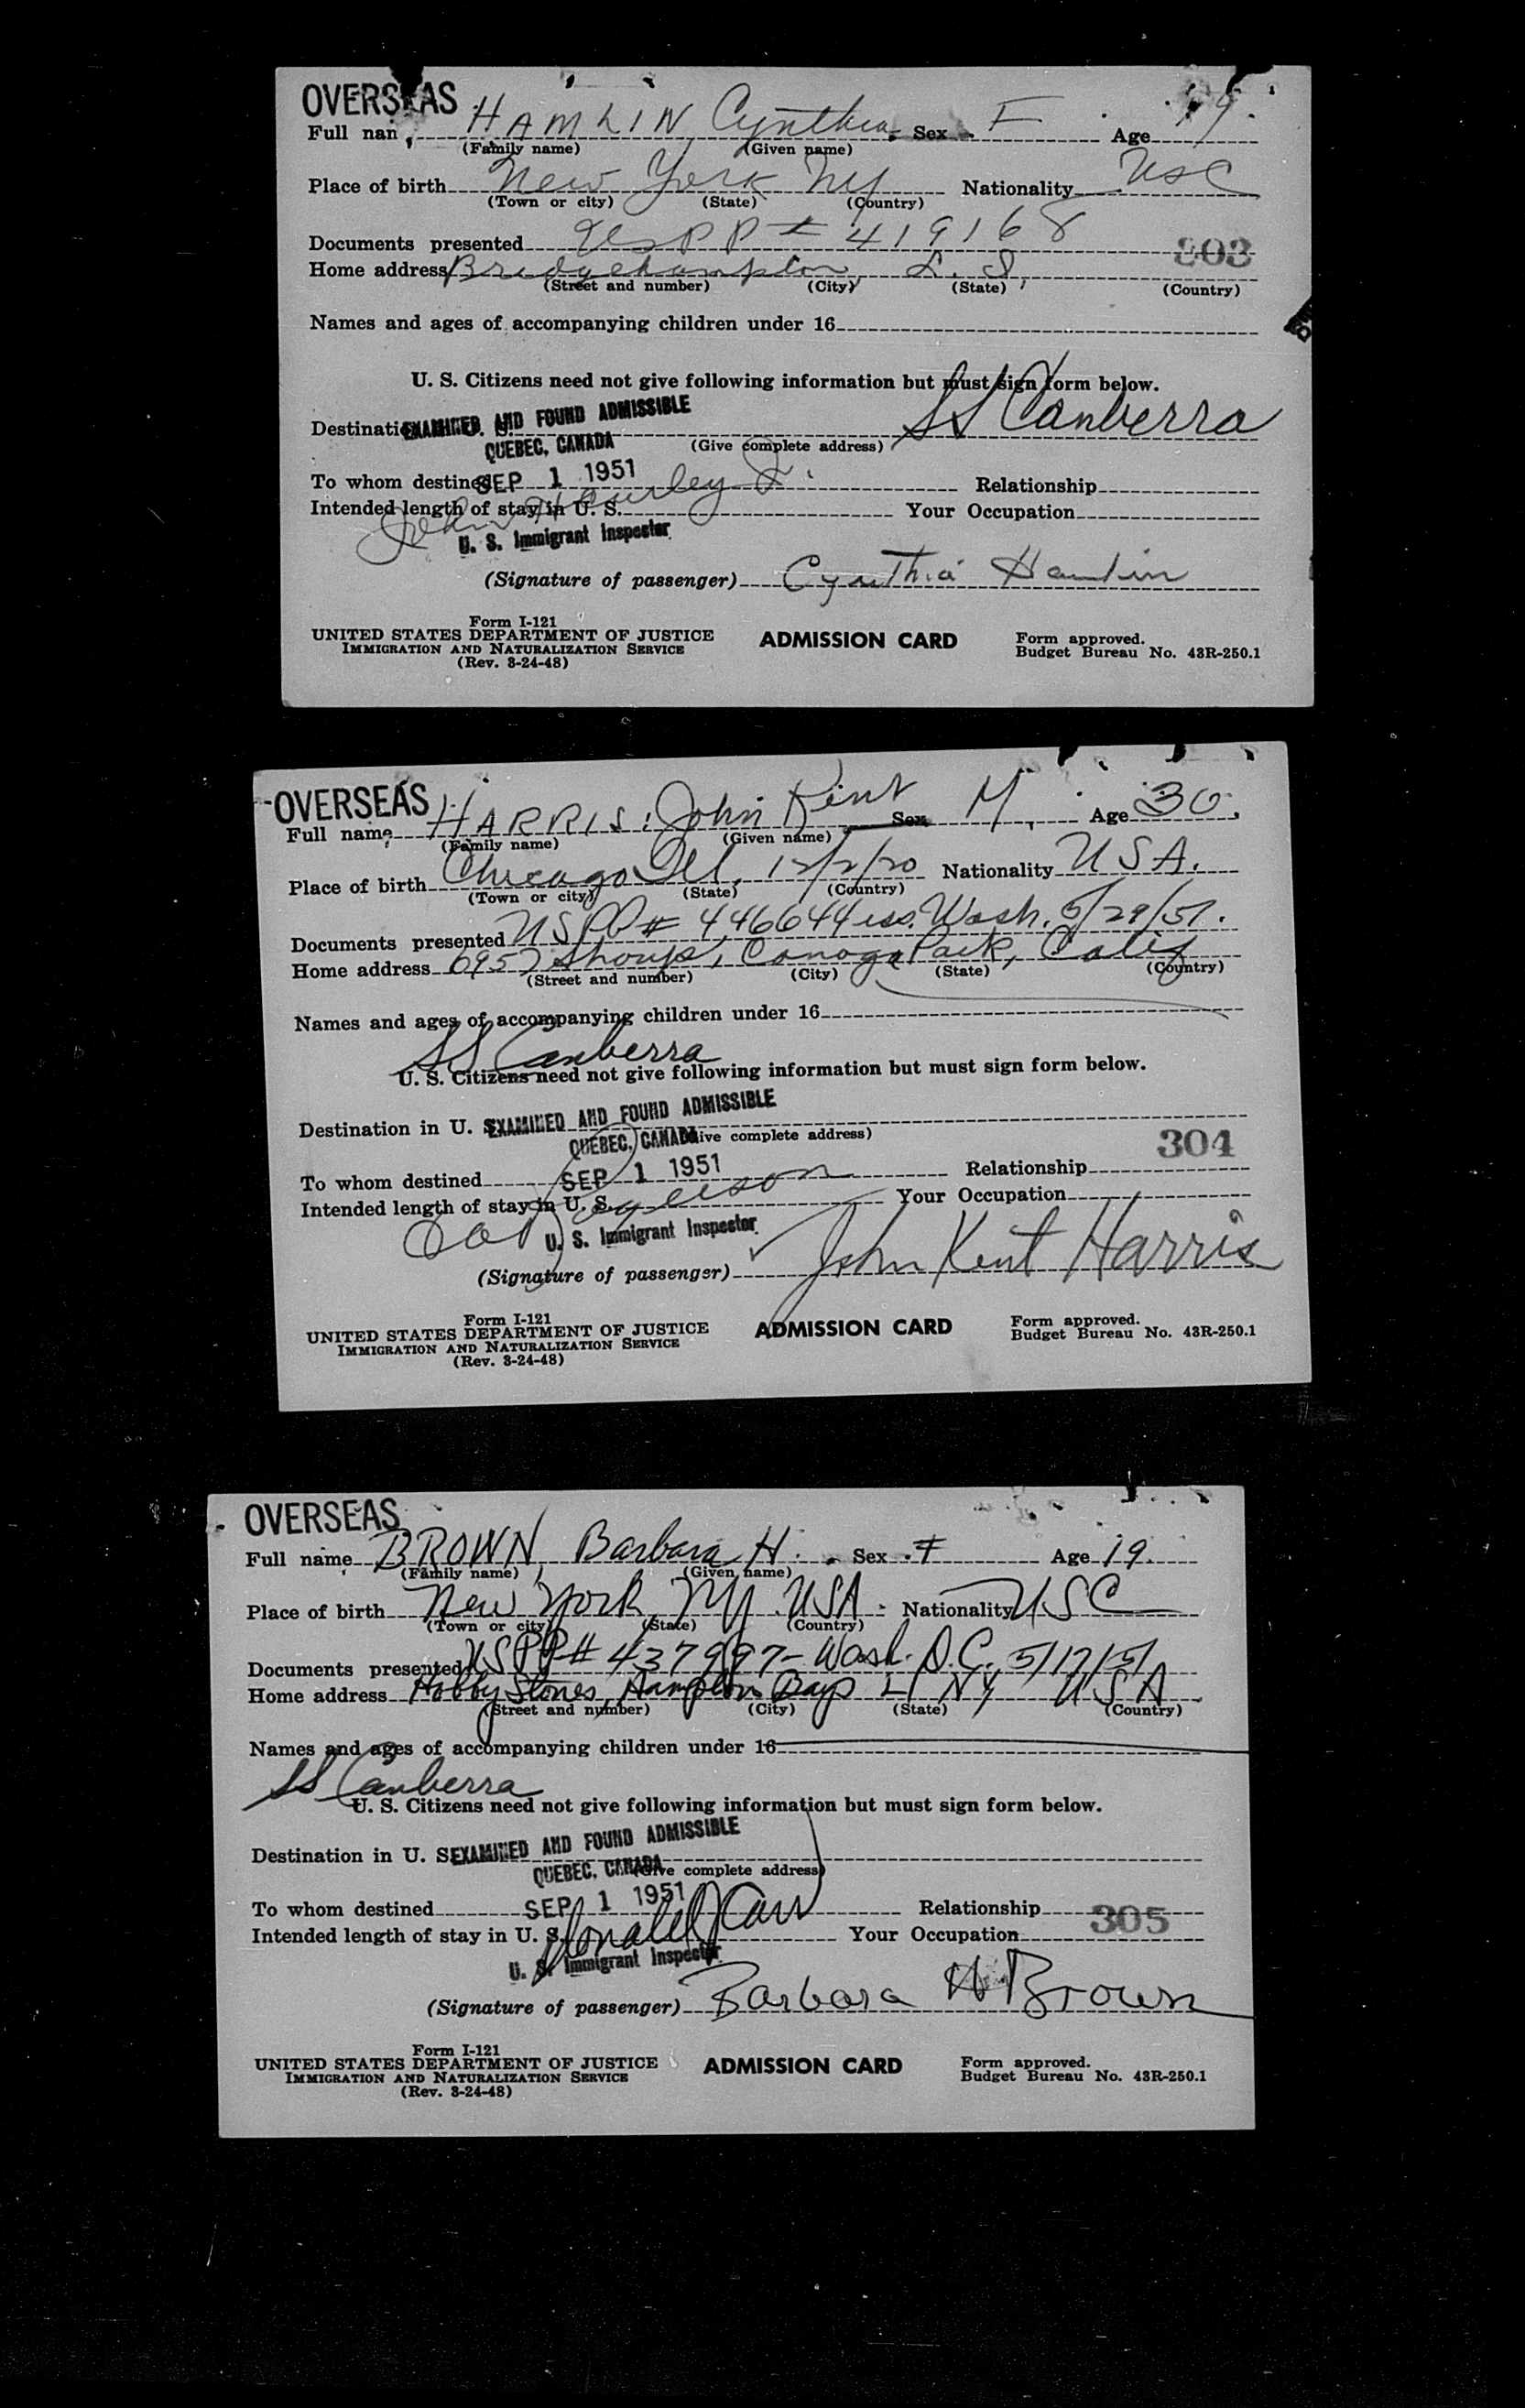 OVERSEAS
Full nam HAMLIN Cynthia Sex F Age 19.
(Family name) (Given name)
Place of birth New York NY Nationality USC
(Town or city) (State) (Country)
Documents presented USPP # 419168
303
Home address Bridgehampton, L. I.
(Street and number) (City) (State) (Country)
Names and ages of accompanying children under 16
U. S. Citizens need not give following information but must sign form below.
SS Canberra
Destination
EXAMINED AND FOUND ADMISSIBLE
(Give complete address)
QUEBEC, CANADA
To whom destined SEP 1 1951 Relationship
Intended length of stay in U. S. Your Occupation
John
U. S. Immigrant Inspector
(Signature of passenger) Cynthia Hamlin
Form I-121
UNITED STATES DEPARTMENT OF JUSTICE ADMISSION CARD Form approved.
IMMIGRATION AND NATURALIZATION SERVICE Budget Bureau No. 43R-250.1
(Rev. 3-24-48)
OVERSEAS
Full name HARRIS, John Kent Sex M. Age 30.
(Family name) (Given name)
Place of birth Chicago Ill. 12/2/20 Nationality USA.
(Town or city) (State) (Country)
Documents presented USPP # 446644 iss. Wash. 5/29/51.
Home address 6957 Shoup, Canoga Park, Calif
(Street and number) (City) (State) (Country)
Names and ages of accompanying children under 16
SS Canberra
U. S. Citizens need not give following information but must sign form below.
Destination in U. S. EXAMINED AND FOUND ADMISSIBLE
QUEBEC, CANADA (Give complete address)
304
To whom destined SEP 1 1951 Relationship
Intended length of stay in U. S. Your Occupation
U. S. Immigrant Inspector
(Signature of passenger) John Kent Harris
Form I-121
UNITED STATES DEPARTMENT OF JUSTICE ADMISSION CARD Form approved.
IMMIGRATION AND NATURALIZATION SERVICE Budget Bureau No. 43R-250.1
(Rev. 3-24-48)
OVERSEAS
Full name BROWN, Barbara H. Sex F Age 19.
(Family name) (Given name)
Place of birth New York, NY. USA. Nationality USC
(Town or city) (State) (Country)
Documents presented USPP # 437997 - Wash. D.C. 5/17/51
Home address Hobby Stones, Hampton Bays LI NY USA.
(Street and number) (City) (State) (Country)
Names and ages of accompanying children under 16
SS Canberra
U. S. Citizens need not give following information but must sign form below.
Destination in U. S. EXAMINED AND FOUND ADMISSIBLE
QUEBEC, CANADA (Give complete address)
To whom destined SEP 1 1951 Relationship
305
Intended length of stay in U. S. Donald J Carr Your Occupation
U. S. Immigrant Inspector
(Signature of passenger) Barbara H Brown
Form I-121
UNITED STATES DEPARTMENT OF JUSTICE ADMISSION CARD Form approved.
IMMIGRATION AND NATURALIZATION SERVICE Budget Bureau No. 43R-250.1
(Rev. 3-24-48)